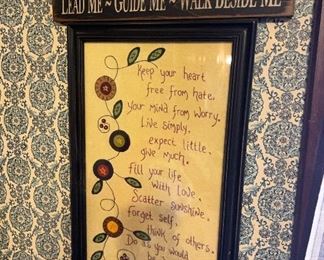 LEAD ME ~ GUIDE ME ~ WALK BESIDE ME
Keep your heart
free from hate.
Your mind from worry.
Live simply.
expect little.
give much.
Fill your life
with love.
Scatter sunshine.
forget self.
think of others.
Do as you would